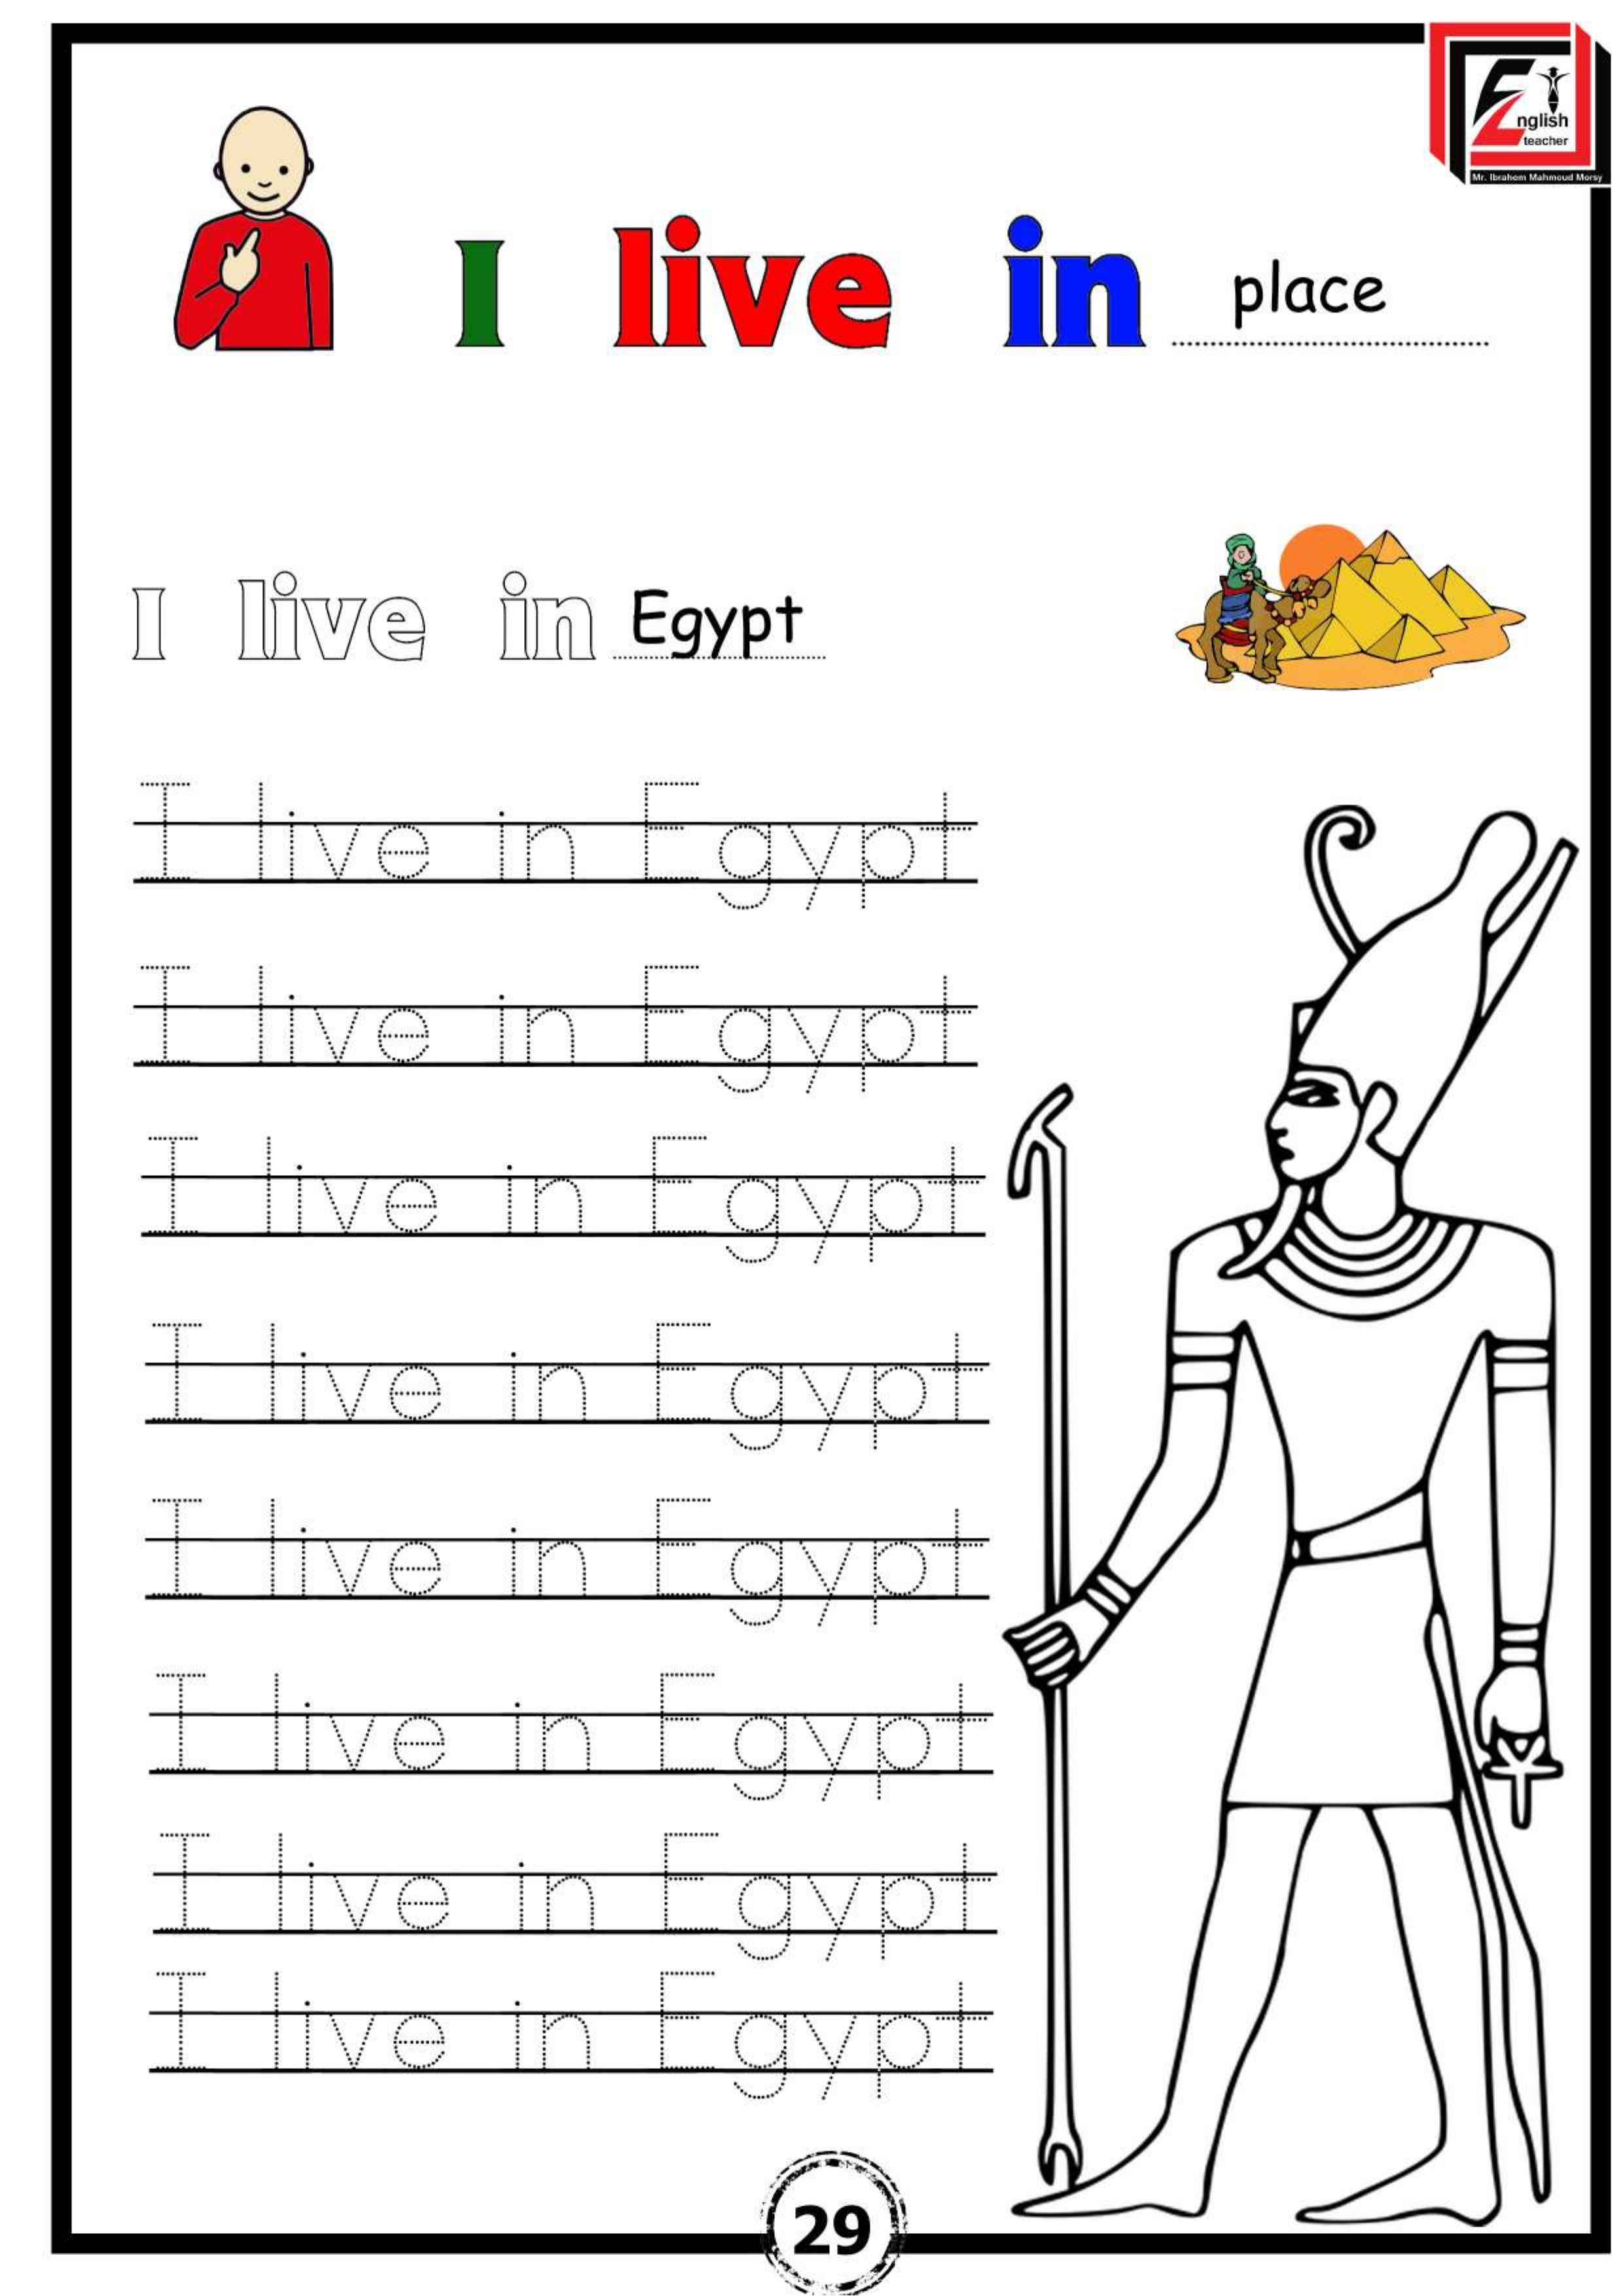 English
teacher
Mr. Ibrahem Mahmoud Morsy
I live in place
I live in Egypt
I live in Egypt
I live in Egypt
I live in Egypt
I live in Egypt
I live in Egypt
I live in Egypt
I live in Egypt
I live in Egypt
29